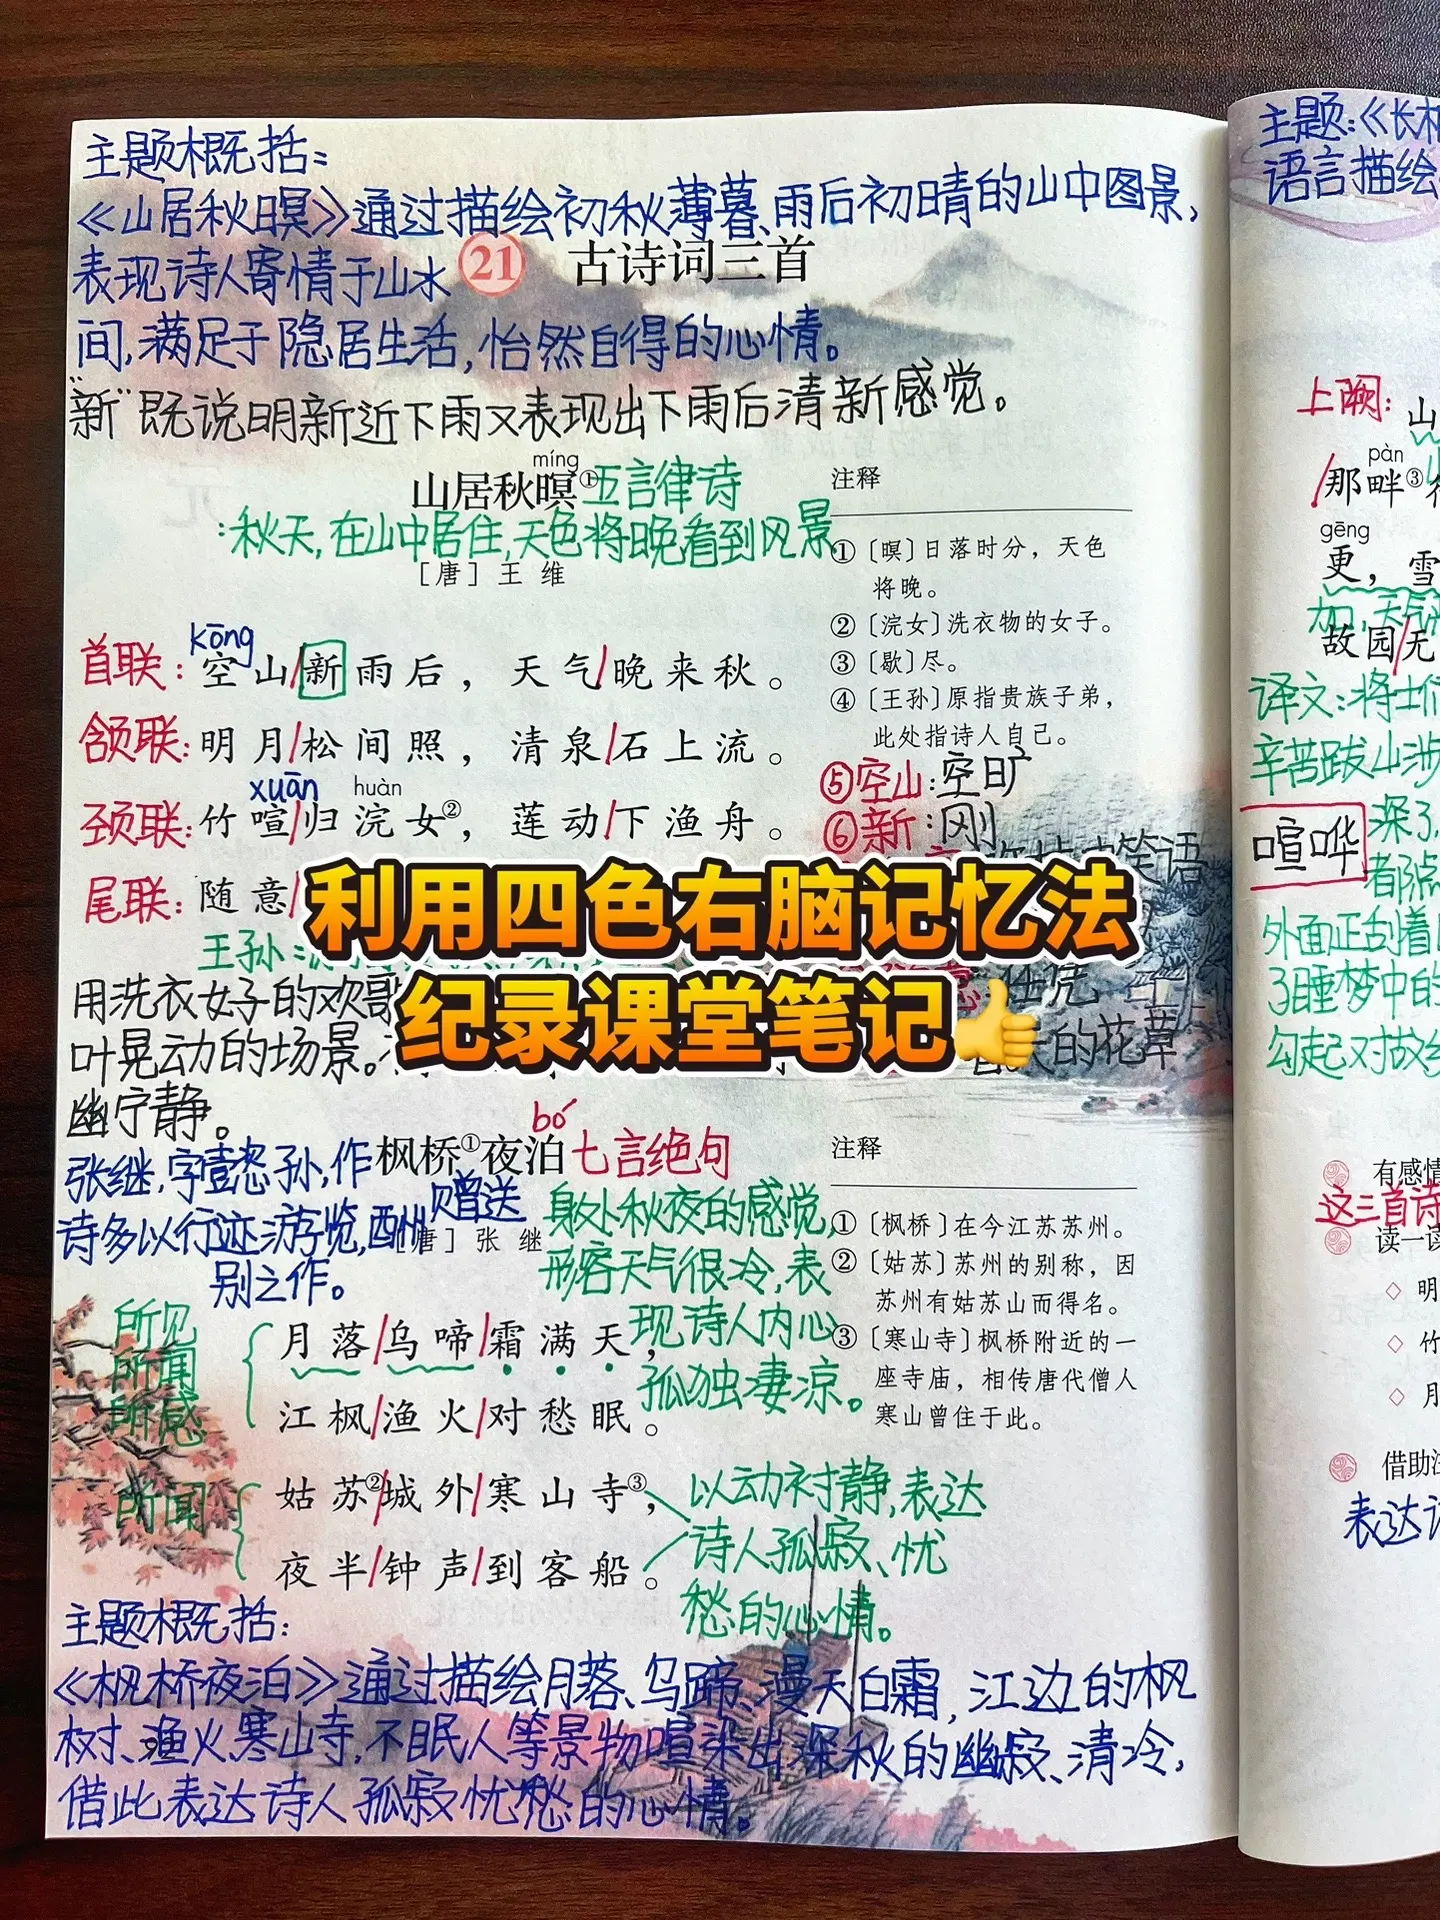 主题概括：
《山居秋暝》通过描绘初秋薄暮、雨后初晴的山中图景，
表现诗人寄情于山水
21 古诗词三首
间，满足于隐居生活，怡然自得的心情。
"新"既说明新近下雨又表现出下雨后清新感觉。
míng
山居秋暝① 五言律诗
：秋天，在山中居住，天色将晚看到风景
［唐］王 维
kōng
首联：空山/新雨后，天气/晚来秋。
颔联：明月/松间照，清泉/石上流。
xuān huàn
颈联：竹喧/归浣女②，莲动/下渔舟。
尾联：随意/
王孙：
用洗衣女子的欢歌
叶晃动的场景。
幽宁静。
注释
①〔暝〕日落时分，天色
将晚。
②〔浣女〕洗衣物的女子。
③〔歇〕尽。
④〔王孙〕原指贵族子弟，
此处指诗人自己。
⑤空山：空旷
⑥新：刚
笑语
的花草
利用四色右脑记忆法
纪录课堂笔记👍
bó
枫桥①夜泊 七言绝句
张继，字懿孙，作
诗多以行迹游览，酬赠送
别之作。
［唐］张 继
身处秋夜的感觉，
形容天气很冷，表
现诗人内心
孤独凄凉。
所见
所闻
所感
月落/乌啼/霜满天，
江枫/渔火/对愁眠。
所闻
姑苏②/城外/寒山寺③，
夜半/钟声/到客船。
以动衬静，表达
诗人孤寂、忧
愁的心情。
注释
①〔枫桥〕在今江苏苏州。
②〔姑苏〕苏州的别称，因
苏州有姑苏山而得名。
③〔寒山寺〕枫桥附近的一
座寺庙，相传唐代僧人
寒山曾住于此。
主题概括：
《枫桥夜泊》通过描绘月落、乌蹄、漫天白霜，江边的枫
树、渔火、寒山寺，不眠人等景物喧染出深秋的幽寂、清冷，
借此表达诗人孤寂忧愁的心情。
主题：《长相
语言描绘
上阕：山
pàn
/那畔③
gēng
更，雪
加，天气
故园/无
译文：将士们
辛苦跋山涉
喧哗
深了，
外面正刮着
了睡梦中的
勾起对故乡
有感情
这三首诗
读一读
明
竹
月
借助注
表达